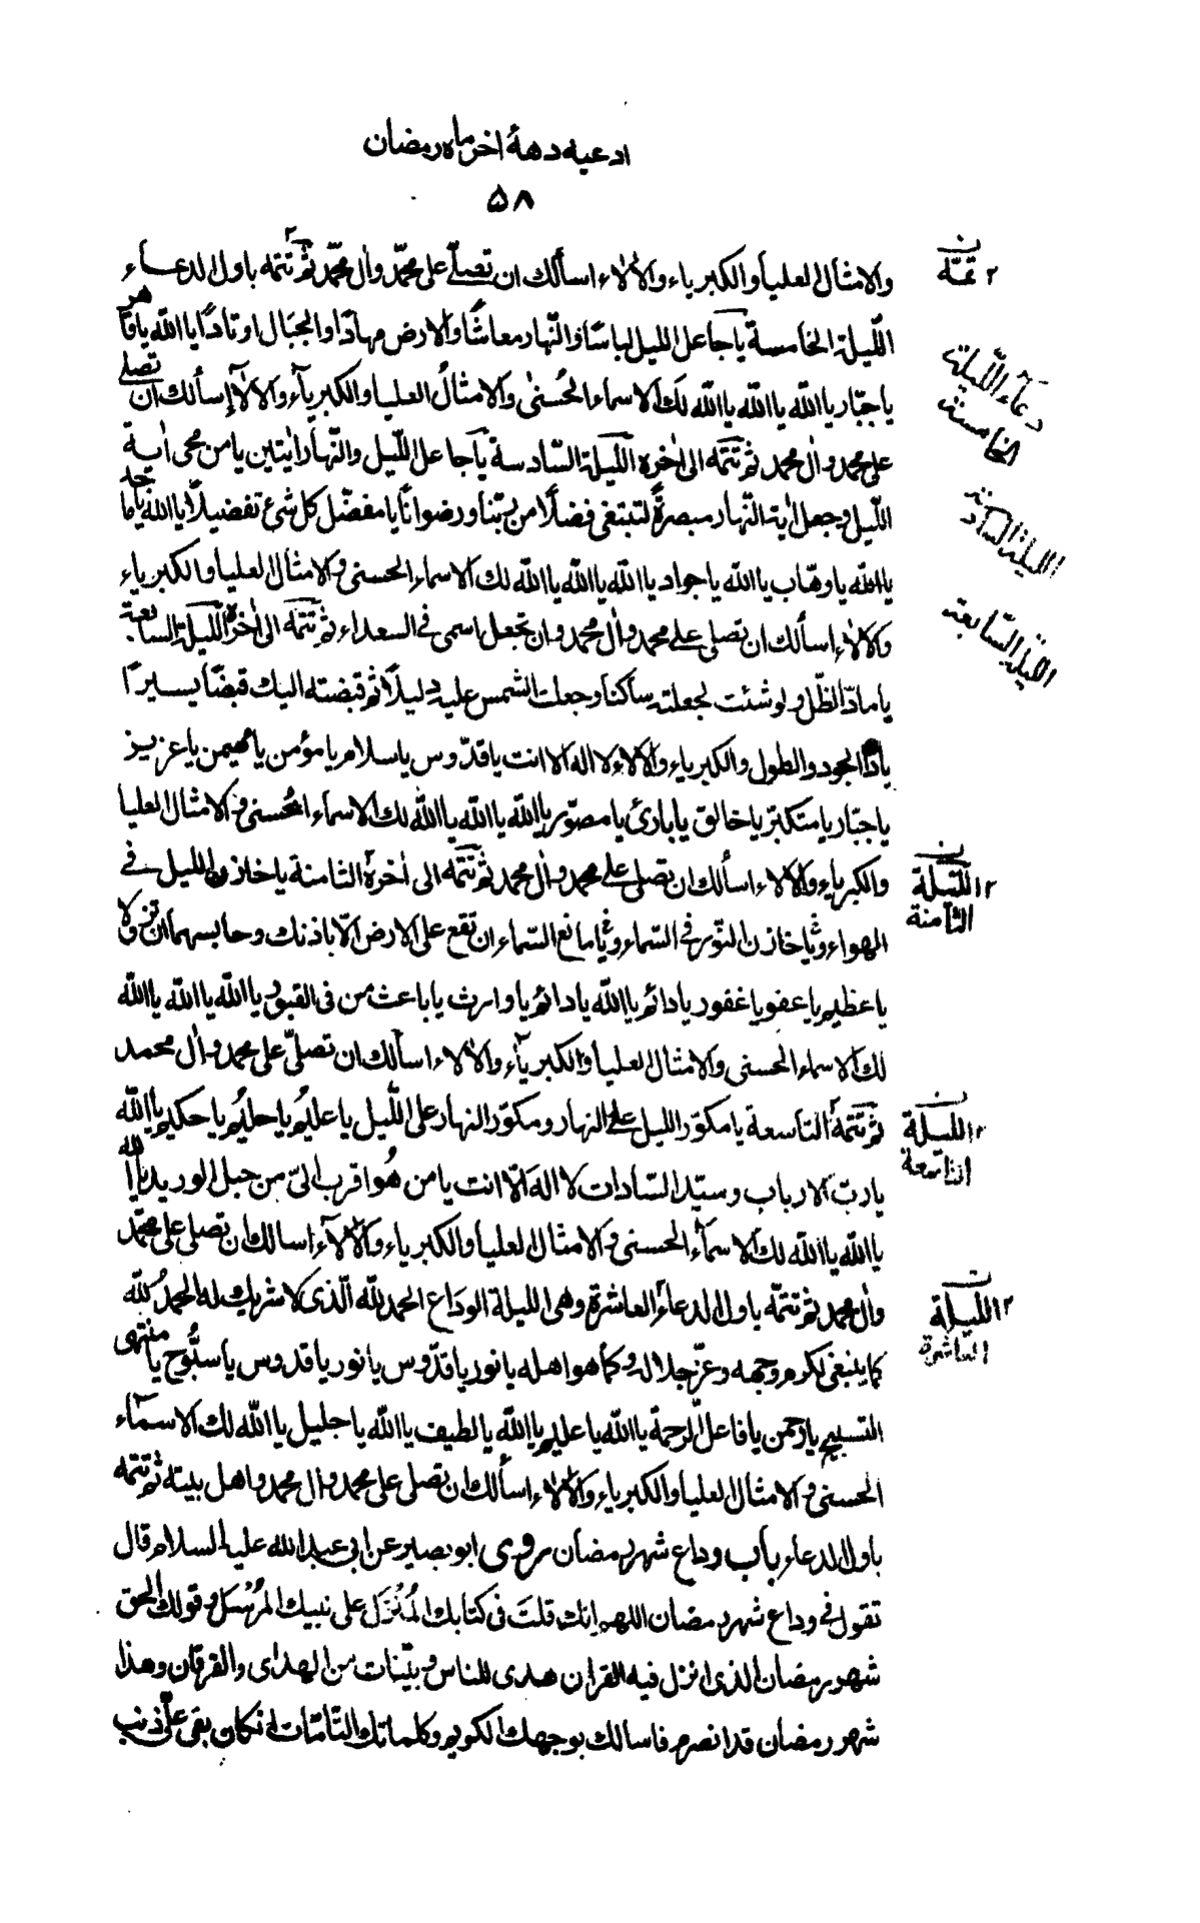 ادعیه دههٔ اخر ماه رمضان
۵۸
والامثال العليا والكبرياء والالاء اسألك ان تصلى على محمّد وال محمّد ثم تتمّه باول الدعاء
تتمّة
اللّيلة الخامسة يا جاعل الليل لباسًا والنّهار معاشًا والارض مهادًا والجبال اوتادًا يا الله يا قاهر
دعاء اللّيلة الخامسة
يا جبّار يا الله يا الله يا الله لك الاسماء الحُسنىٰ والامثالُ العليا والكبريآء والالآء إسألك ان تصلى
على محمد وال محمد ثم تتمّه الى اخره اللّيلة السّادسة يا جاعل اللّيل والنّهار ايتين يا من محى اية
الليلة السادسة
اللّيل وجعل اية النّهار مبصرةً لتبتغى فضلًا من ربّنا ورضوانًا يا مفضّل كل شئ تفضيلًا يا الله يا ماجد
يا الله يا وهّاب يا الله يا جواد يا الله يا الله يا الله لك الاسماء الحسنى والامثال العليا والكبرياء
والالاء إسألك ان تصلى على محمد وال محمد وان تجعل اسمى فى السعداء ثم تتمّه الى اخره اللّيلة السّابعة
الليلة السّابعة
يا مادّ الظّل ولو شئت لجعلته ساكنًا وجعلت الشمس عليه دليلًا ثم قبضته اليك قبضًا يسيرًا
يا ذا الجود والطول والكبرياء والالاء لا اله الا انت يا قدّوس يا سلام يا مؤمن يا مهيمن يا عزيز
يا جبّار يا متكبّر يا خالق يا بارئ يا مصوّر يا الله يا الله يا الله لك الاسمآء الحُسنى والامثال العليا
والكبرياء والالاء اسألك ان تصلى على محمد وال محمد ثم تتمّه الى اخره الثامنة يا خازن الليل فى
اللّيلة الثامنة
الهواء ويا خازن النّور فى السّماء ويا مانع السّماء ان تقع على الارض الّا باذنك وحابسهما ان تزولا
يا عظيم يا عفو يا غفور يا دائم يا الله يا دائم يا وارث يا باعث من فى القبور يا الله يا الله يا الله
لك الاسماء الحسنى والامثال العليا والكبرياء والالاء اسألك ان تصلّى على محمد وال محمد
ثم تتمّه التاسعة يا مكوّر الليل على النهار ومكوّر النهار على اللّيل يا عليمُ يا حليمُ يا حكيم يا الله
اللّيلة التاسعة
يا ربّ الارباب وسيّد السّادات لا اله الّا انت يا من هُو اقرب الىّ من حبل الوريد يا الله
يا الله يا الله لك الاسمآء الحسنى والامثال العليا والكبرياء والالآء اسالك ان تصلى على محمّد
وال محمد ثم تتمّه باول الدعاء العاشرة وهى الليلة الوداع الحمد للّه الّذى لا شريك له الحمدُ للّه
اللّيلة العاشرة
كما ينبغى لكرم وجهه وعزّ جلاله وكما هو اهله يا نور يا قدّوس يا نور يا قدوس يا سبُّوح يا منتهى
التسبيح يا رحمن يا فاعل الرحمة يا الله يا عليم يا الله يا لطيف يا الله يا جليل يا الله لك الاسمآء
الحسنى والامثال العليا والكبرياء والالاء اسألك ان تصلى على محمد وال محمد واهل بيته ثم تتمّه
باول الدعاء باب وداع شهر رمضان روى ابو بصير عن ابى عبد الله عليه السلام قال
تقول فى وداع شهر رمضان اللهم انك قلتَ فى كتابك المُنْزَل على نبيك المرُسَل وقولك الحق
شهر رمضان الذى انزل فيه القران هدى للناس وبيّنات من الهدى والفرقان وهذا
شهر رمضان قد انصرم فاسالك بوجهك الكريم وكلماتك التّامّات ان كان بقى علىّ ذنب